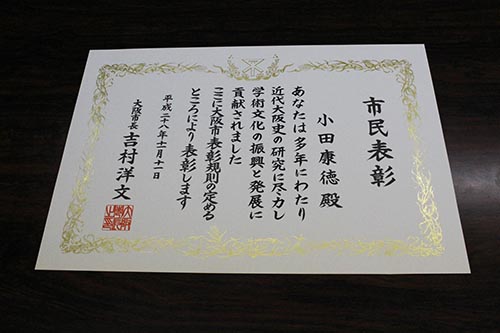 市民表彰
小田康徳殿
あなたは多年にわたり
近代大阪史の研究に尽力し
学術文化の振興と発展に
貢献されました
ここに大阪市表彰規則の定める
ところにより表彰します
平成二十八年十一月十一日
大阪市長 吉村洋文